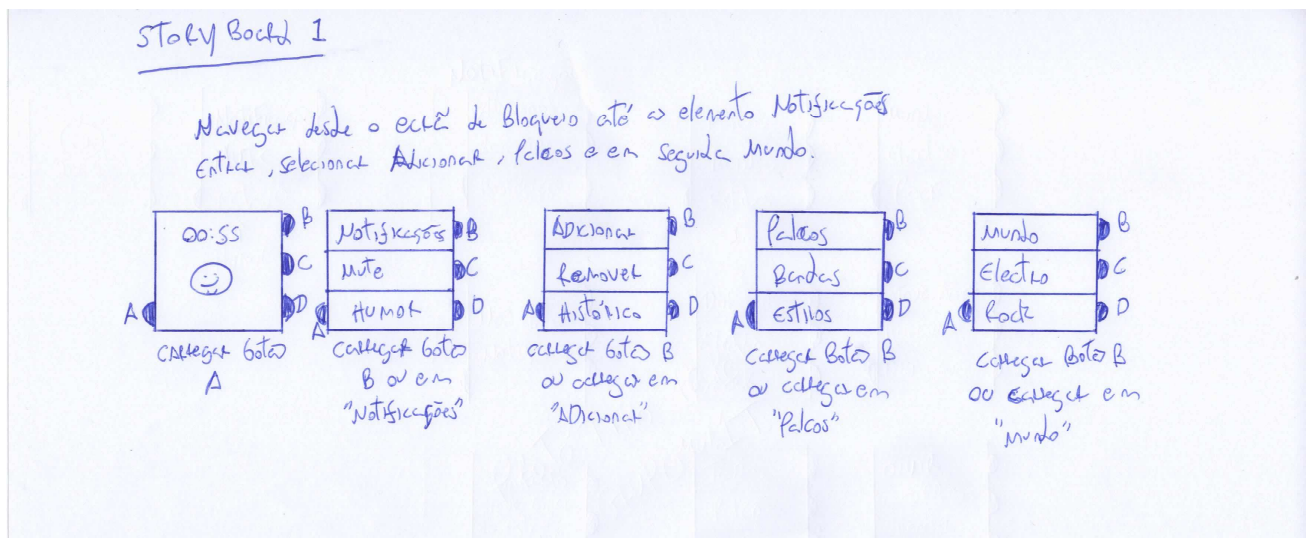 STORYBOARD 1
Navegar desde o ecrã de Bloqueio até ao elemento Notificações
Entrar, selecionar Adicionar, Palcos e em seguida Mundo.
00:55
B
C
D
A
carregar botão
A
Notificações B
Mute C
Humor D
A
carregar botão
B ou em
"Notificações"
Adicionar B
Remover C
A Histórico D
carregar botão B
ou carregar em
"Adicionar"
Palcos B
Bandas C
A Estilos D
carregar Botão B
ou carregar em
"Palcos"
Mundo B
Electro C
A Rock D
carregar Botão B
ou carregar em
"Mundo"